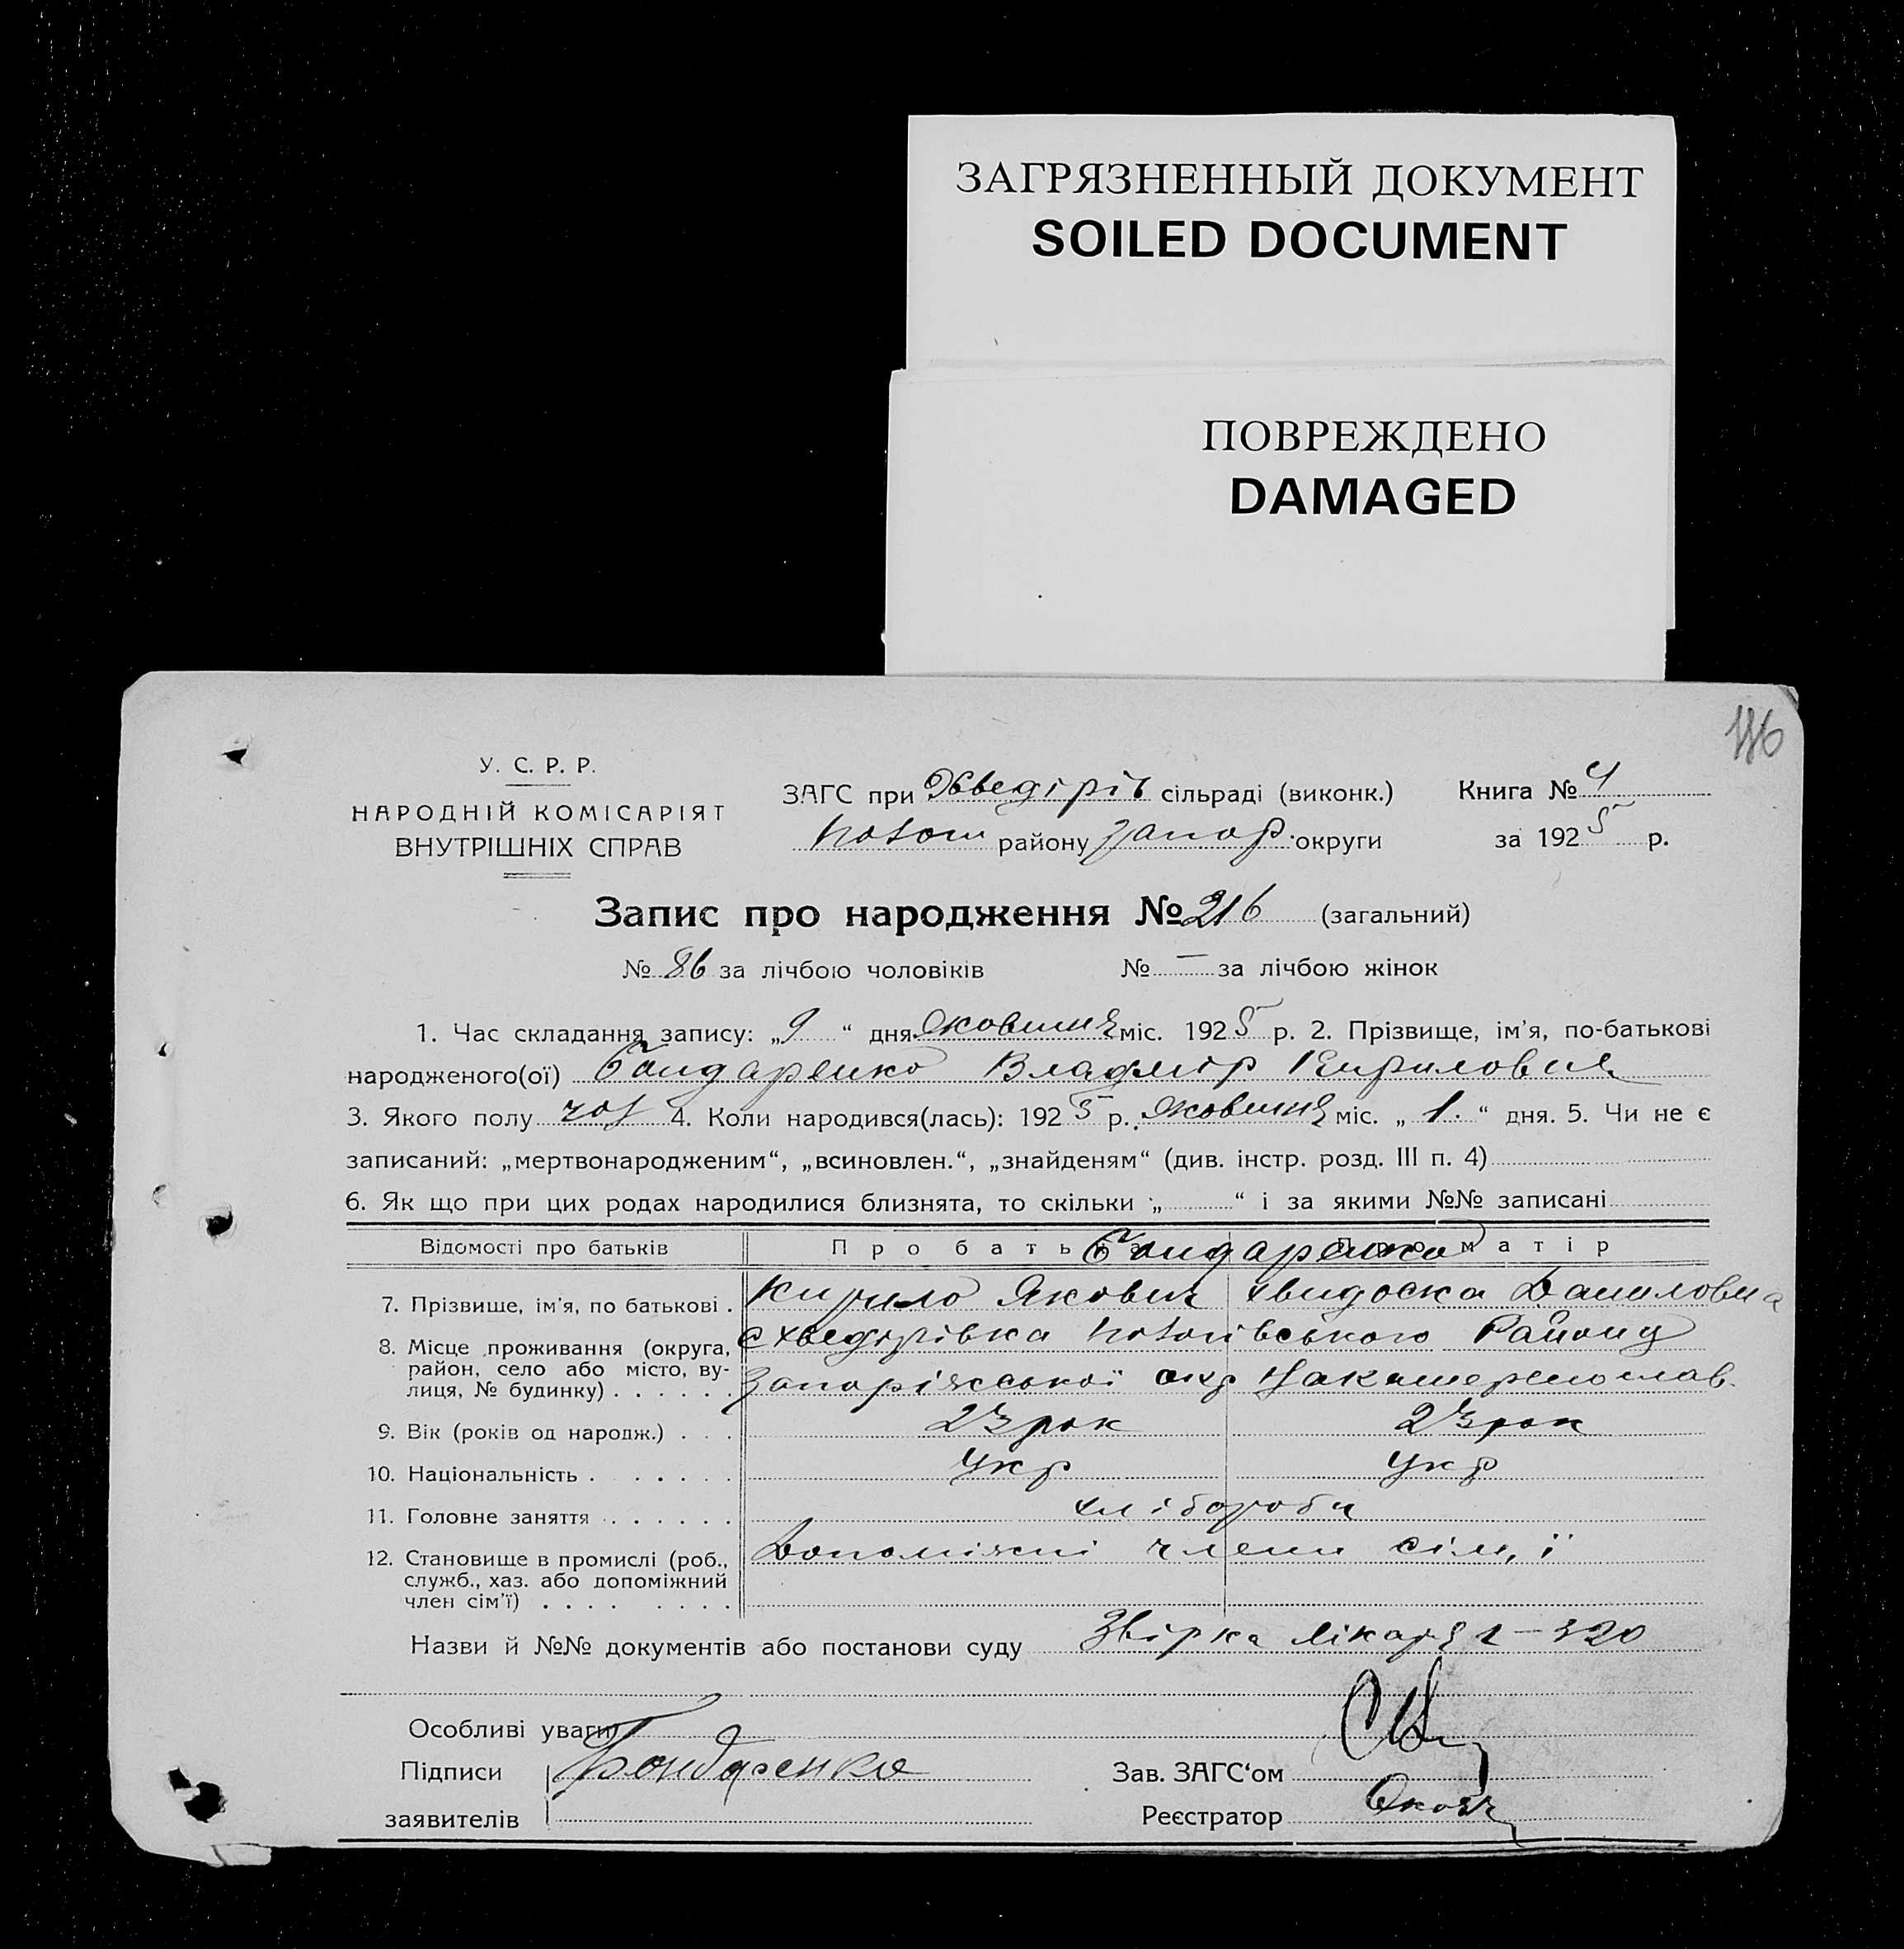 ЗАГРЯЗНЕННЫЙ ДОКУМЕНТ
SOILED DOCUMENT
ПОВРЕЖДЕНО
DAMAGED
У. С. Р. Р.
НАРОДНІЙ КОМІСАРІЯТ
ВНУТРІШНІХ СПРАВ
ЗАГС при Хведірів сільраді (виконк.)
району Запор. округи
Книга № 4
за 1925 р.
Запис про народження № 216 (загальний)
№ 86 за лічбою чоловіків № — за лічбою жінок
1. Час складання запису: „9“ дня жовтня міс. 1925 р. 2. Прізвище, ім'я, по-батькові
народженого(ої) Бондаренко Владімір Кирилович
3. Якого полу чол 4. Коли народився(лась): 1925 р. жовтня міс. „1.“ дня. 5. Чи не є
записаний: „мертвонародженим“, „всиновлен.“, „знайденям“ (див. інстр. розд. III п. 4)
6. Як що при цих родах народилися близнята, то скільки „ “ і за якими №№ записані
Відомості про батьків Про батька Про матір
Бондаренко
7. Прізвище, ім'я, по батькові . Кирило Якович Хвидоска Даниловна
8. Місце проживання (округа, район, село або місто, вулиця, № будинку) . . . . . . с Хведорівка району
Запоріжської окр
9. Вік (років од народж.) . . . 23 рок 23 рок
10. Національність . . . . . . . Укр Укр
11. Головне заняття . . . . . . хлібороби
12. Становище в промислі (роб., служб., хаз. або допоміжний член сім'ї) . . . . . . . . Допоміжні члени сім,ї
Назви й №№ документів або постанови суду лікаря
Особливі уваги
Підписи Бондаренко
заявителів
Зав. ЗАГС‘ом
Реєстратор